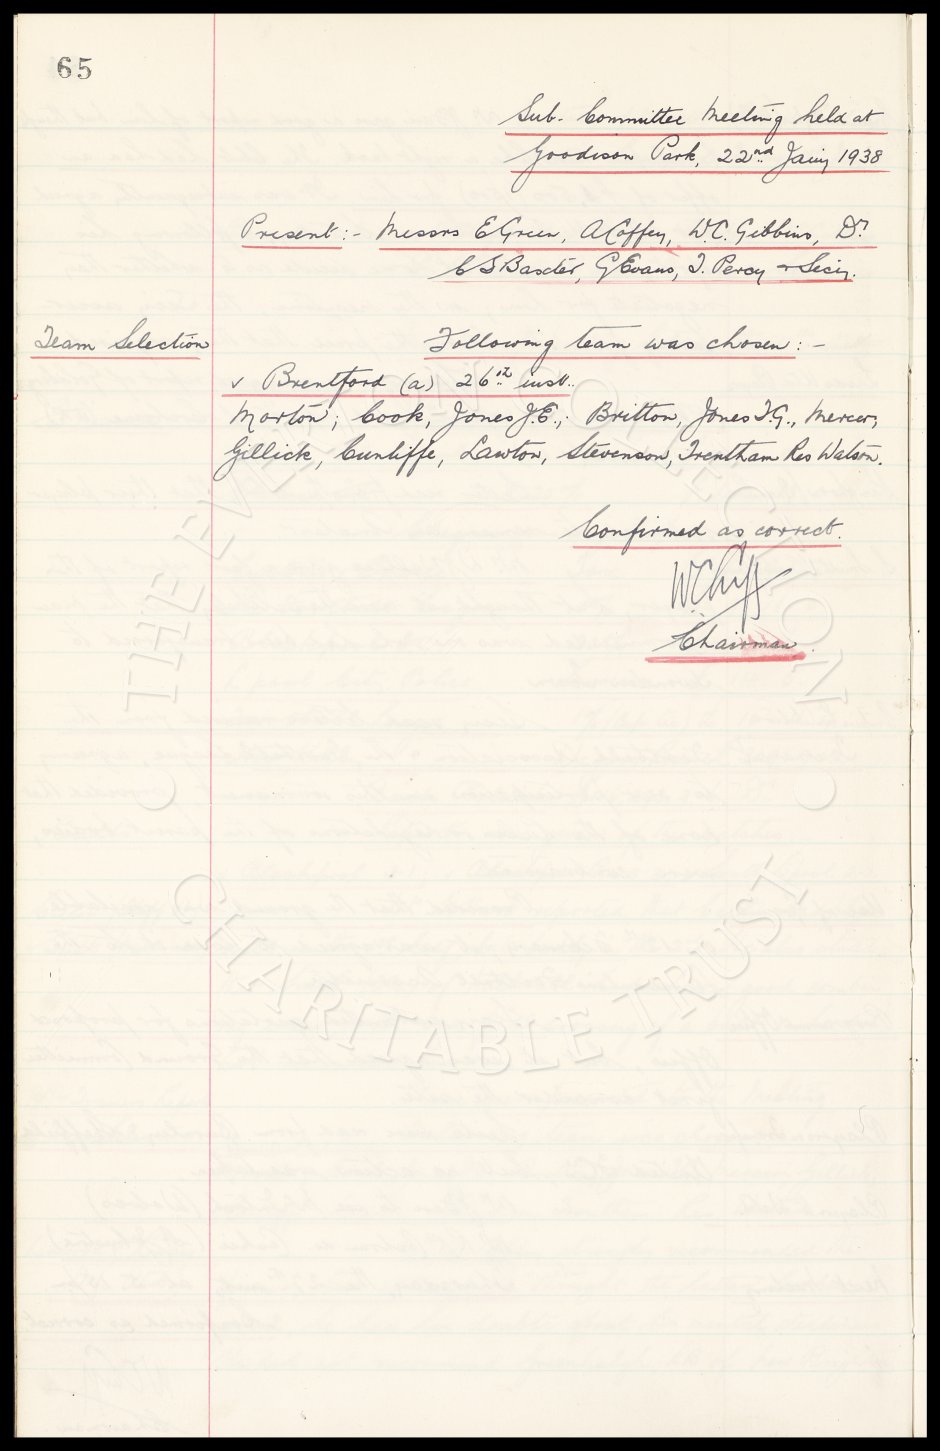 65
Sub. Committee Meeting held at
Goodison Park, 22nd Jany 1938
Present:- Messrs E Green, A Coffey, W.C. Gibbins, Dr
C S Baxter, G Evans, T. Percy & Secy.
Team Selection
Following team was chosen:-
v Brentford (a) 26th inst.
Morton; Cook, Jones J.E.; Britton, Jones T.G., Mercer,
Gillick, Cunliffe, Lawton, Stevenson, Trentham Res Watson.
Confirmed as correct.
W C Cuff
Chairman.
THE EVERTON COLLECTION
CHARITABLE TRUST